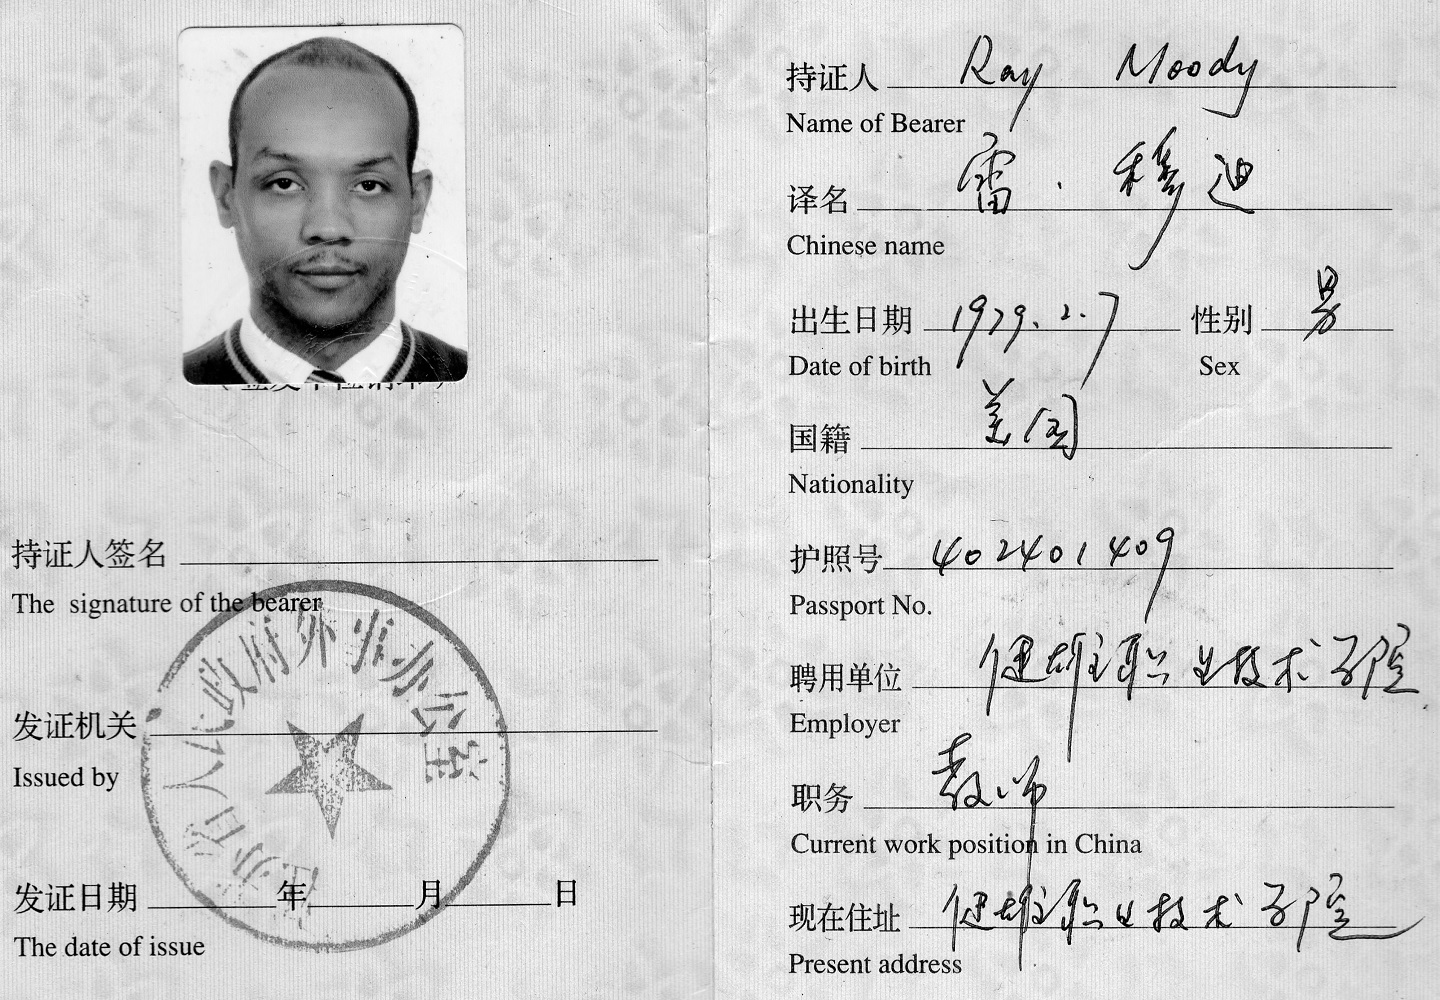 持证人签名
The signature of the bearer
江苏省人民政府外事办公室
发证机关
Issued by
发证日期 年 月 日
The date of issue
持证人 Ray Moody
Name of Bearer
译名 雷·穆迪
Chinese name
出生日期 1979.2.7 性别 男
Date of birth Sex
国籍 美国
Nationality
护照号 402401409
Passport No.
聘用单位 健雄职业技术学院
Employer
职务 教师
Current work position in China
现在住址 健雄职业技术学院
Present address